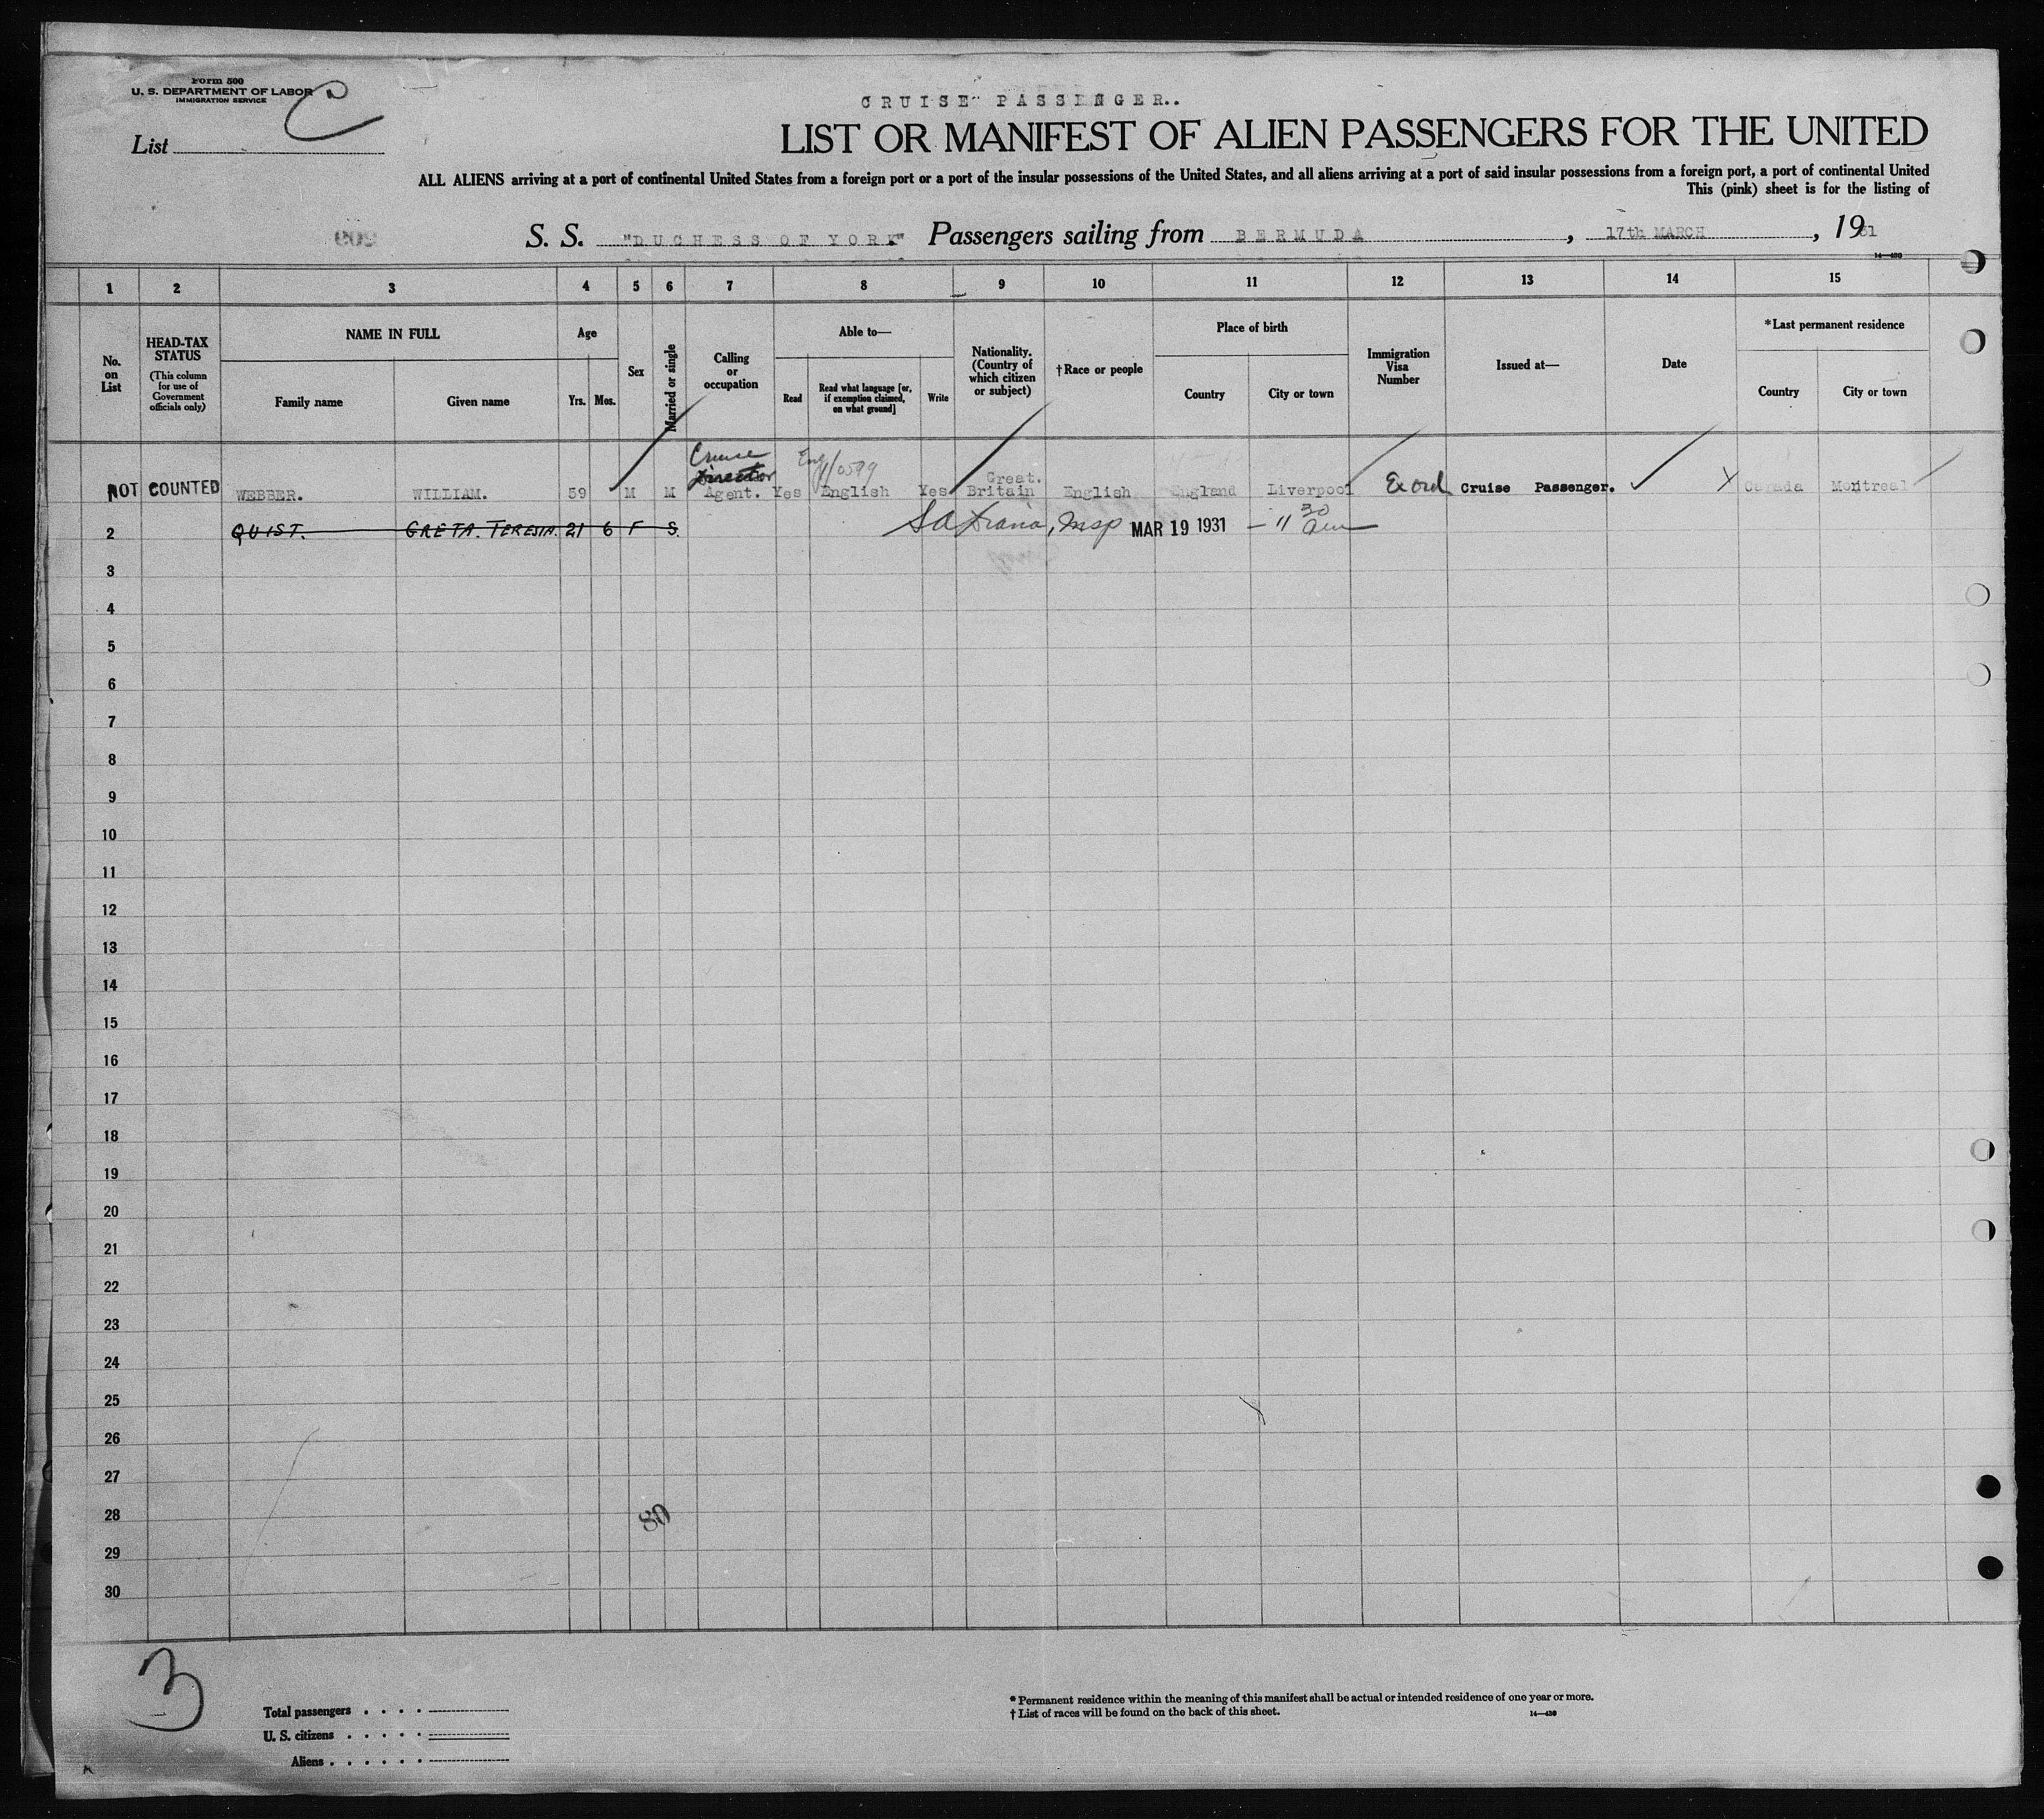 Form 500
U. S. DEPARTMENT OF LABOR
IMMIGRATION SERVICE
List
CRUISE PASSENGER..
LIST OR MANIFEST OF ALIEN PASSENGERS FOR THE UNITED
ALL ALIENS arriving at a port of continental United States from a foreign port or a port of the insular possessions of the United States, and all aliens arriving at a port of said insular possessions from a foreign port, a port of continental United
This (pink) sheet is for the listing of
S. S. "DUCHESS OF YORK" Passengers sailing from BERMUDA, 17th MARCH, 1931
1 2 3 4 5 6 7 8 9 10 11 12 13 14 15
No. on List
HEAD-TAX STATUS
(This column for use of Government officials only)
NAME IN FULL
Family name
Given name
Age
Yrs.
Mos.
Sex
Married or single
Calling or occupation
Able to—
Read
Read what language [or, if exemption claimed, on what ground]
Write
Nationality. (Country of which citizen or subject)
†Race or people
Place of birth
Country
City or town
Immigration Visa Number
Issued at—
Date
*Last permanent residence
Country
City or town
Cruise
Director
NOT COUNTED WEBBER. WILLIAM. 59 M M Agent. Yes English Yes Great. Britain English England Liverpool Cruise Passenger. Canada Montreal
2 QUIST. GRETA. TERESIA. 21 6 F S. MAR 19 1931
3
4
5
6
7
8
9
10
11
12
13
14
15
16
17
18
19
20
21
22
23
24
25
26
27
28
29
30
80
3
Total passengers
U. S. citizens
Aliens
* Permanent residence within the meaning of this manifest shall be actual or intended residence of one year or more.
† List of races will be found on the back of this sheet.
14—430